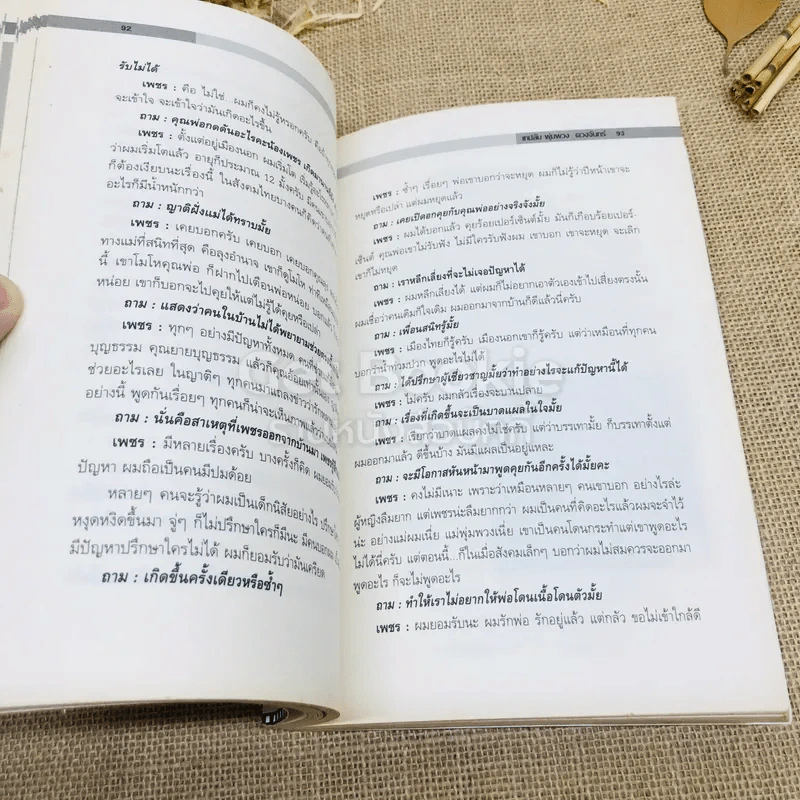 92
รับไม่ได้
เพชร : คือ ไม่ใช่...ผมก็คงไม่รู้หรอกครับ
จะเข้าใจ จะเข้าใจว่ามันเกิดอะไรขึ้น
ถาม : คุณพ่อกดดันอะไรคะน้องเพชร
เพชร : ตั้งแต่อยู่เมืองนอก ผมเริ่มโต
ว่าผมเริ่มโตแล้ว อายุก็ประมาณ 12 มั้งครับ
ก็ต้องเงียบนะเรื่องนี้ ในสังคมไทยบางคนก็
อะไรก็มีน้ำหนักกว่า
ถาม : ญาติฝั่งแม่ได้ทราบมั้ย
เพชร : เคยบอกครับ เคยบอก
ทางแม่ที่สนิทที่สุด คือลุงอำนาจ เขาก็ดูโมโห
นี้ เขาโมโหคุณพ่อ ก็ฝากไปเตือนพ่อหน่อย
หน่อย เขาก็บอกจะไปคุยให้แต่ไม่รู้ได้คุยหรือเปล่า
ถาม : แสดงว่าคนในบ้านไม่ได้พยายามช่วย
เพชร : ทุกๆ อย่างมีปัญหาทั้งหมด
บุญธรรม คุณยายบุญธรรม แล้วก็คุณอ้อย
ช่วยอะไรเลย ในญาติๆ ทุกคนมาแถลงข่าวว่ารัก
อย่างนี้ พูดกันเรื่อยๆ ทุกคนก็น่าจะเห็นภาพแล้ว
ถาม : นั่นคือสาเหตุที่เพชรออกจากบ้านมา
เพชร : มีหลายเรื่องครับ บางครั้งก็คิด
ปัญหา ผมถือเป็นคนมีปมด้อย
หลายๆ คนจะรู้ว่าผมเป็นเด็กนิสัยอย่างไร
หงุดหงิดขึ้นมา จู่ๆ ก็ไม่ปรึกษาใครก็มีนะ
มีปัญหาปรึกษาใครไม่ได้ ผมก็ยอมรับว่ามันเครียด
ถาม : เกิดขึ้นครั้งเดียวหรือซ้ำๆ
เทปลับ พุ่มพวง ดวงจันทร์ 93
เพชร : ซ้ำๆ เรื่อยๆ พ่อเขาบอกว่าจะหยุด ผมก็ไม่รู้ว่าปีหน้าเขาจะ
หยุดหรือเปล่า แต่ผมหยุดแล้ว
ถาม : เคยเปิดอกคุยกับคุณพ่ออย่างจริงจังมั้ย
เพชร : ผมได้บอกแล้ว คุยร้อยเปอร์เซ็นต์มั้ย มันก็เกือบร้อยเปอร์-
เซ็นต์ คุณพ่อเขาไม่รับฟัง ไม่มีใครรับฟังผม เขาบอก เขาจะหยุด จะเลิก
เขาก็ไม่หยุด
ถาม : เราหลีกเลี่ยงที่จะไม่เจอปัญหาได้
เพชร : ผมหลีกเลี่ยงได้ แต่ผมก็ไม่อยากเอาตัวเองเข้าไปเสี่ยงตรงนั้น
ผมเชื่อว่าคนเดิมก็คือคนเดิม ผมออกมาจากบ้านก็ดีแล้วนี่ครับ
ถาม : เพื่อนสนิทรู้มั้ย
เพชร : เมืองไทยก็รู้ครับ เมืองนอกเขาก็รู้ครับ แต่ว่าเหมือนที่ทุกคน
บอกว่าน้ำท่วมปวก พูดอะไรไม่ได้
ถาม : ได้ปรึกษาผู้เชี่ยวชาญมั้ยว่าทำอย่างไรจะแก้ปัญหานี้ได้
เพชร : ไม่ครับ ผมกลัวเรื่องจะบานปลาย
ถาม : เรื่องที่เกิดขึ้นจะเป็นบาดแผลในใจมั้ย
เพชร : เรียกว่าบาดแผลคงไม่ใช่ครับ แต่ว่าบรรเทามั้ย ก็บรรเทาตั้งแต่
ผมออกมาแล้ว ดีขึ้นบ้าง มันมีแผลเป็นอยู่แหละ
ถาม : จะมีโอกาสหันหน้ามาพูดคุยกันอีกครั้งได้มั้ยคะ
เพชร : คงไม่มีเนาะ เพราะว่าเหมือนหลายๆ คนเขาบอก อย่างไรล่ะ
ผู้หญิงลืมยาก แต่เพชรน่ะลืมยากกว่า ผมเป็นคนที่คิดอะไรแล้วผมจะจำไว้
น่ะ อย่างแม่ผมเนี่ย แม่พุ่มพวงเนี่ย เขาเป็นคนโดนกระทำแต่เขาพูดอะไร
ไม่ได้นี่ครับ แต่ตอนนี้...ก็ในเมื่อสังคมเล็กๆ บอกว่าผมไม่สมควรจะออกมา
พูดอะไร ก็จะไม่พูดอะไร
ถาม : ทำให้เราไม่อยากให้พ่อโดนเนื้อโดนตัวมั้ย
เพชร : ผมยอมรับนะ ผมรักพ่อ รักอยู่แล้ว แต่กลัว ขอไม่เข้าใกล้ดี
Get Bookie